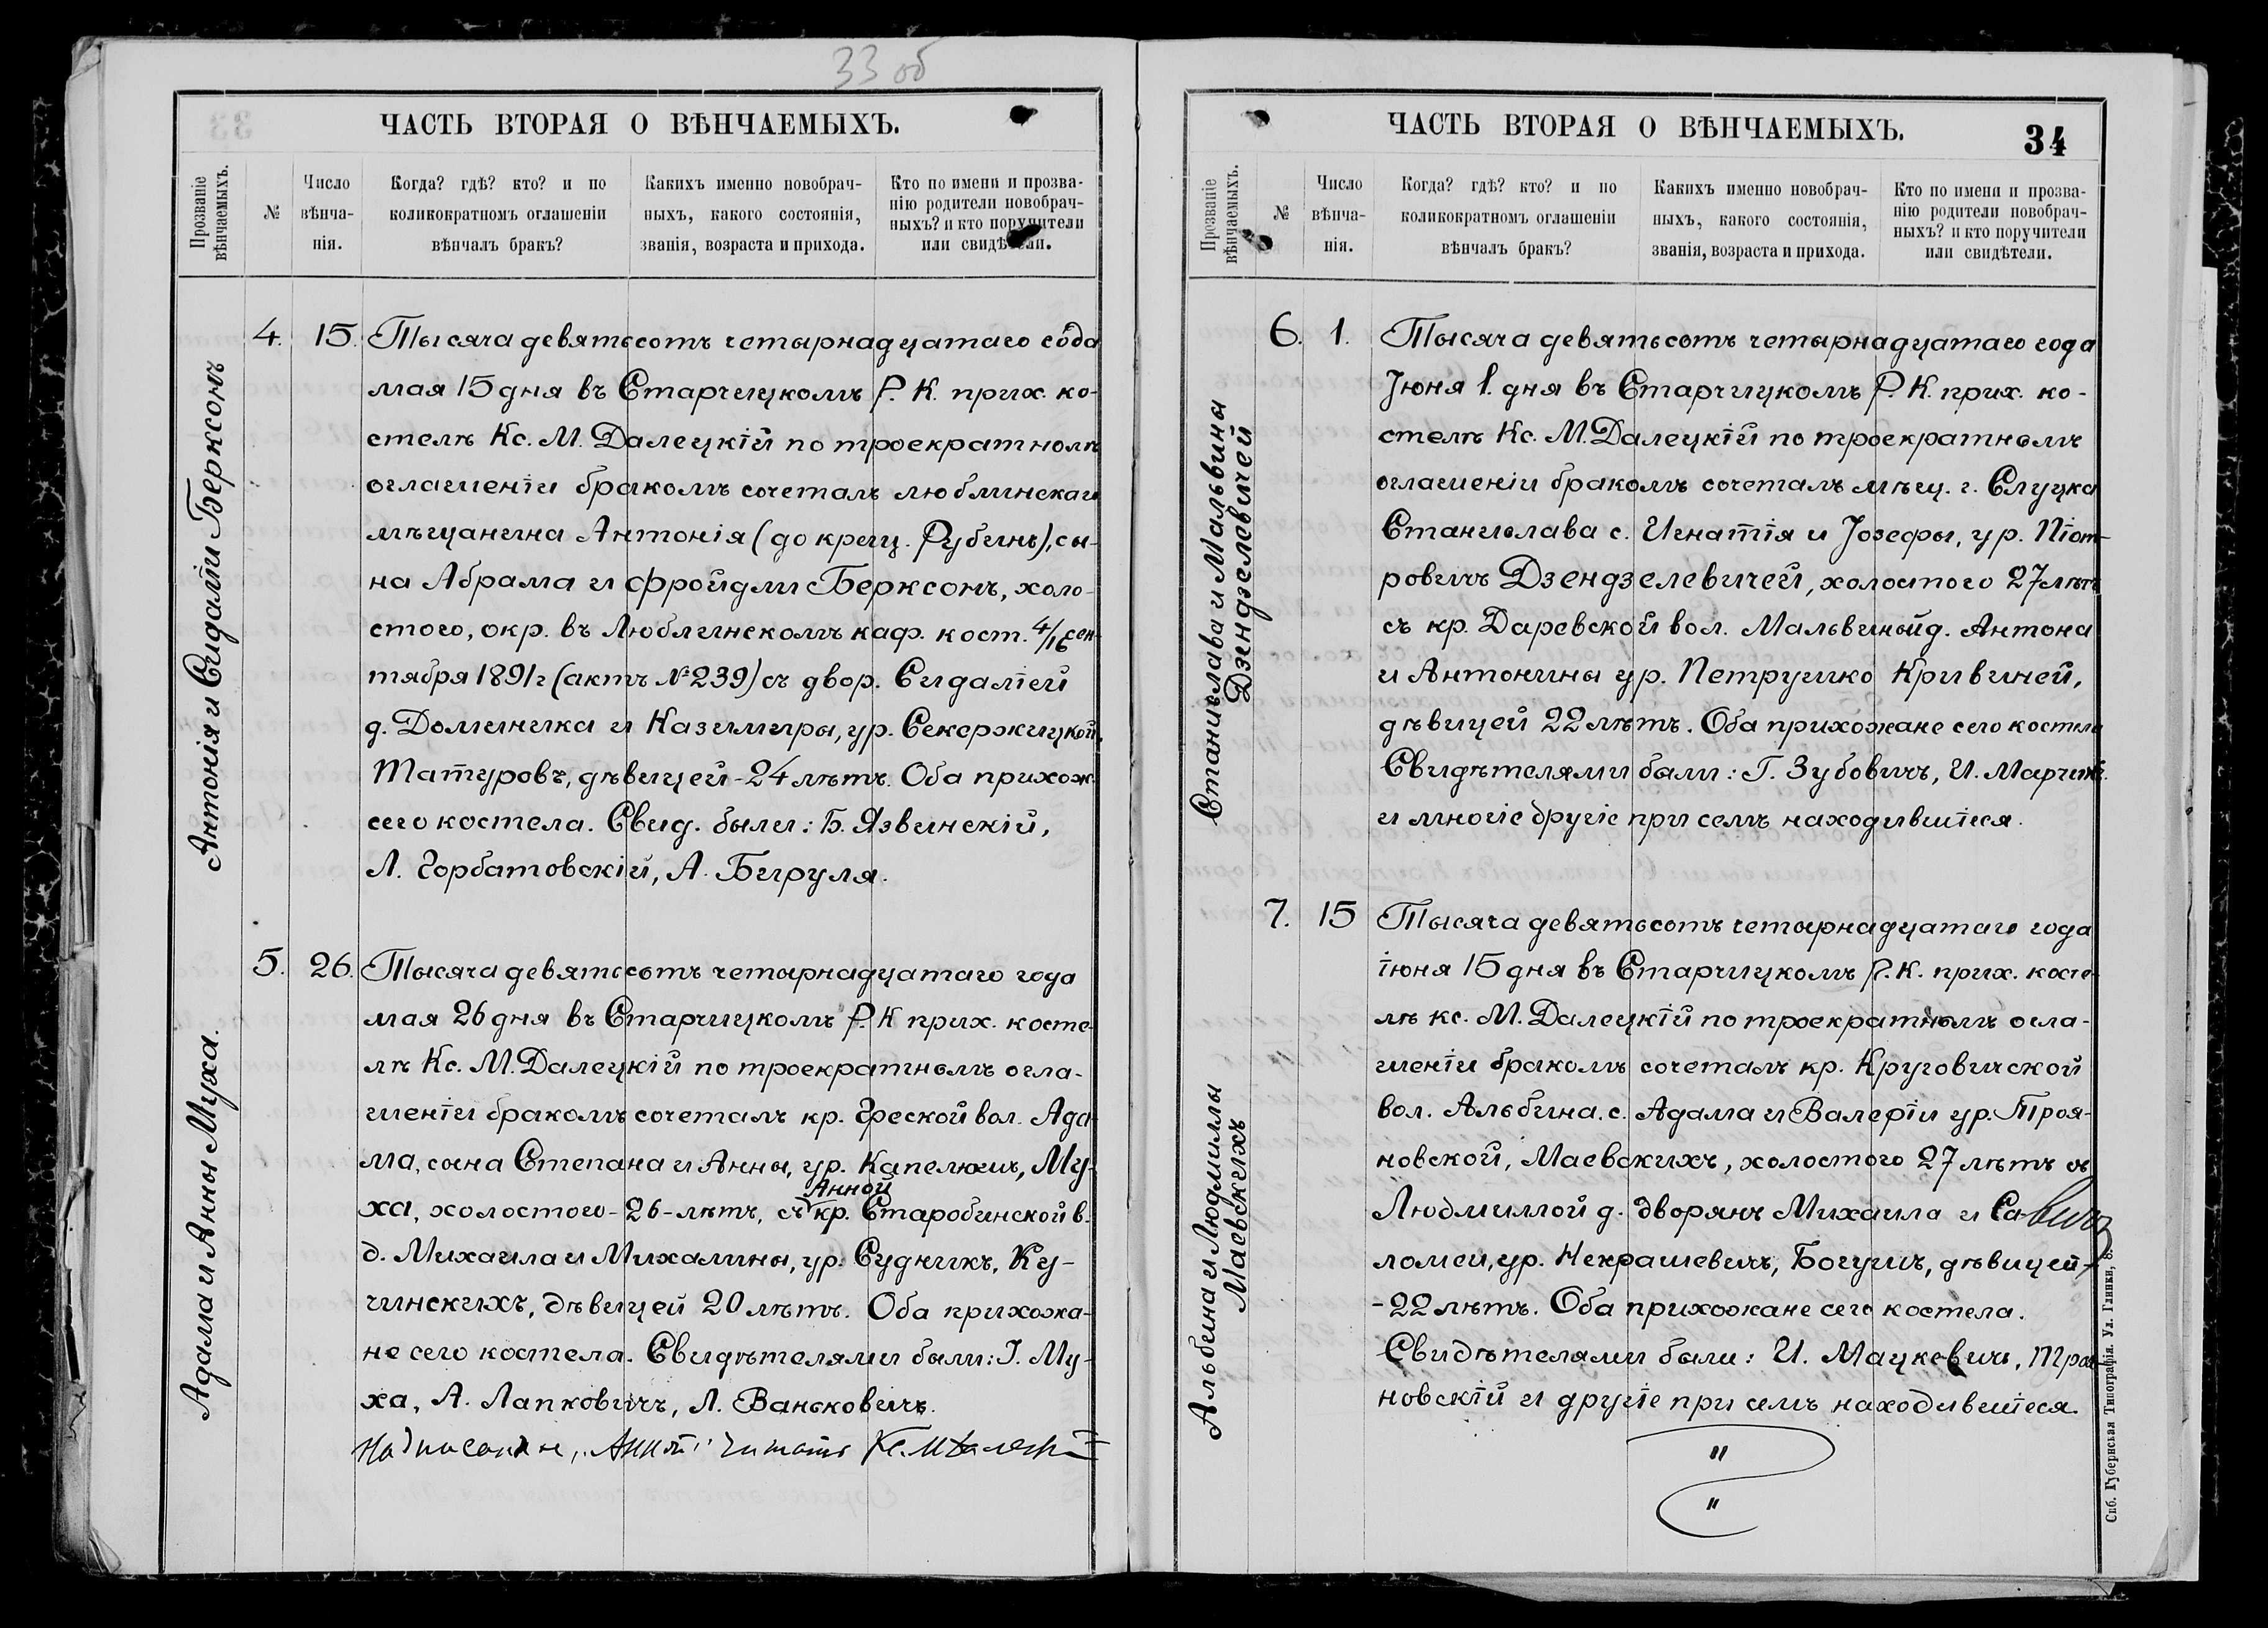 33 об
ЧАСТЬ ВТОРАЯ О ВѢНЧАЕМЫХЪ.
Прозваніе вѣнчаемыхъ.
№
Число вѣнча-нія.
Когда? гдѣ? кто? и по
коликократномъ оглашеніи
вѣнчалъ бракъ?
Какихъ именно новобрач-
ныхъ, какого состоянія,
званія, возраста и прихода.
Кто по имени и прозва-
нію родители новобрач-
ныхъ? и кто поручители
или свидѣтели.
Антонія и Сидаліи Берксонъ
4. 15. Тысяча девятьсотъ четырнадцатаго года
мая 15 дня въ Старчицкомъ Р. К. прих. ко-
стелѣ Кс. М. Далецкій по троекратномъ
оглашеніи бракомъ сочеталъ люблинскаго
мѣщанина Антонія (до крещ. Рубинъ), сы-
на Абрама и Фройдли Берксонъ, холо-
стого, окр. въ Люблинскомъ каф. кост. 4/16 сен-
тября 1891 г (актъ № 239) съ двор. Сидаліей
д. Доминика и Казимиры, ур. Секержицкой,
Татуровъ, дѣвицей - 24 лѣтъ. Оба прихож.
сего костела. Свид. были: Б. Язвинскій,
Л. Горбатовскій, А. Бируля.
Адама и Анны Муха.
5. 26. Тысяча девятьсотъ четырнадцатаго года
мая 26 дня въ Старчицкомъ Р. К прих. косте-
лѣ Кс. М. Далецкій по троекратномъ огла-
шеніи бракомъ сочеталъ кр. Греской вол. Ада-
ма, сына Степана и Анны, ур. Капелюшъ, Му-
Анной
ха, холостого - 26 - лѣтъ, съ кр. Старобинской в.
д. Михаила и Михалины, ур. Судникъ, Ку-
чинскихъ, дѣвицей 20 лѣтъ. Оба прихожа-
не сего костела. Свидѣтелями были: І. Му-
ха, А. Лапковичъ, Л. Ваньковичъ.
Надписанное „Анной" читать Кс. М Далецкій
ЧАСТЬ ВТОРАЯ О ВѢНЧАЕМЫХЪ.
34
Прозваніе вѣнчаемыхъ.
№
Число вѣнча-нія.
Когда? гдѣ? кто? и по
коликократномъ оглашеніи
вѣнчалъ бракъ?
Какихъ именно новобрач-
ныхъ, какого состоянія,
званія, возраста и прихода.
Кто по имени и прозва-
нію родители новобрач-
ныхъ? и кто поручители
или свидѣтели.
Станислава и Мальвины
Дзендзелевичей
6. 1. Тысяча девятьсотъ четырнадцатаго года
Іюня 1. дня въ Старчицкомъ Р. К. прих. ко-
стелѣ Кс. М. Далецкій по троекратномъ
оглашеніи бракомъ сочеталъ мѣщ. г. Слуцка
Станислава с. Игнатія и Іозефы, ур. Піот-
ровичъ Дзендзелевичей, холостого 27 лѣтъ
съ кр. Даревской вол. Мальвиной д. Антона
и Антонины ур. Петрушко Кривиней,
дѣвицей 22 лѣтъ. Оба прихожане сего костела
Свидѣтелями были: Г. Зубовичъ, И. Марчик.
и многіе другіе при семъ находившіеся.
Альбина и Людмиллы
Маевскихъ
7. 15 Тысяча девятьсотъ четырнадцатаго года
іюня 15 дня въ Старчицкомъ Р. К. прих. косте-
лѣ кс. М. Далецкій по троекратномъ огла-
шеніи бракомъ сочеталъ кр. Круговичской
вол. Альбина. с. Адама и Валеріи ур. Троя-
новской, Маевскихъ, холостого 27 лѣтъ съ
Людмиллой д. дворянъ Михаила и Са
ломеи, ур. Некрашевичъ, Богушъ, дѣвицей
- 22 лѣтъ. Оба прихожане сего костела.
Свидѣтелями были: И. Мацкевичъ, Троя-
новскій и другіе при семъ находившіеся.
Спб. Губернская Типографія. Ул. Глинки, 8.